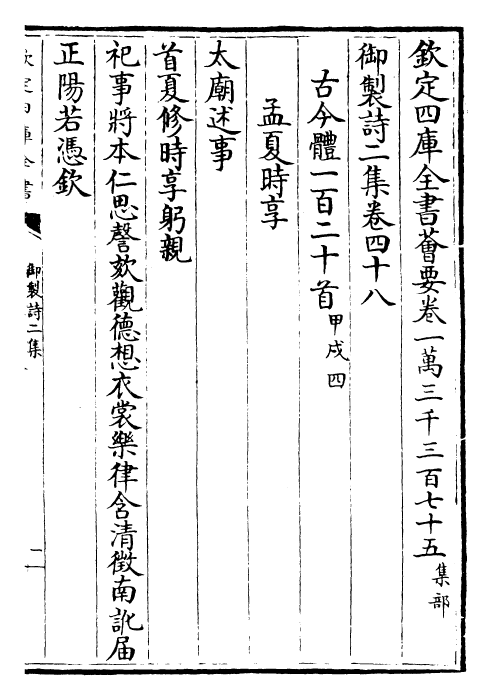 欽定四庫全書薈要卷一萬三千三百七十五集部
御製詩二集卷四十八
古今體一百二十首甲戌四
孟夏時享
太廟述事
首夏修時享躬親
祀事將本仁思謦欬觀德想衣裳樂律含清徵南訛届
正陽若憑欽
欽定四庫全書
御製詩二集
二